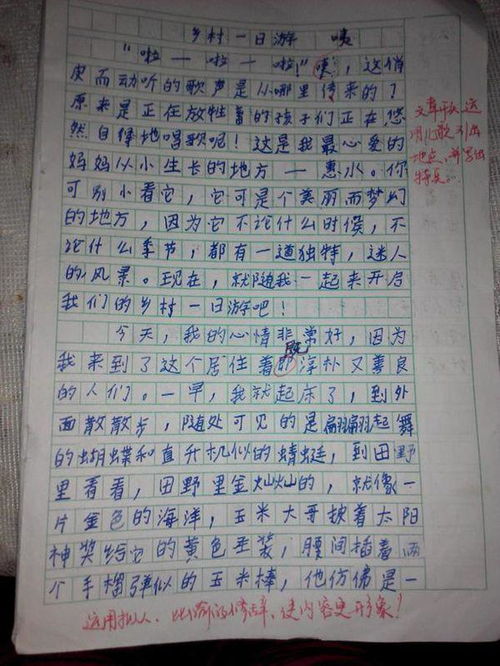 乡村一日游 咦
“啦—啦—啦！”咦，这俏
皮而动听的歌声是从哪里传来的？
原来是正在放牲着的孩子们正在悠
然自得地唱歌呢！这是我最心爱的
妈妈从小生长的地方—惠水。你
可别小看它，它可是个美丽而梦幻
的地方，因为它不论什么时候，不
论什么季节，都有一道独特，迷人
的风景。现在，就随我一起来开启
我们的乡村一日游吧！
今天，我的心情非常好，因为
我来到了这个居住着既淳朴又善良
的人们。一早，我就起床了，到外
面散散步，随处可见的是翩翩起舞
的蝴蝶和直升机似的蜻蜓，到田野
里看看，田野里金灿灿的，就像一
片金色的海洋，玉米大哥披着太阳
神奖给它的黄色圣装，腰间插着两
个手榴弹似的玉米棒，他仿佛是一
文章开头运
用儿歌引出
地点，并写出
特点。
运用拟人、比喻的修辞，使内容更形象！